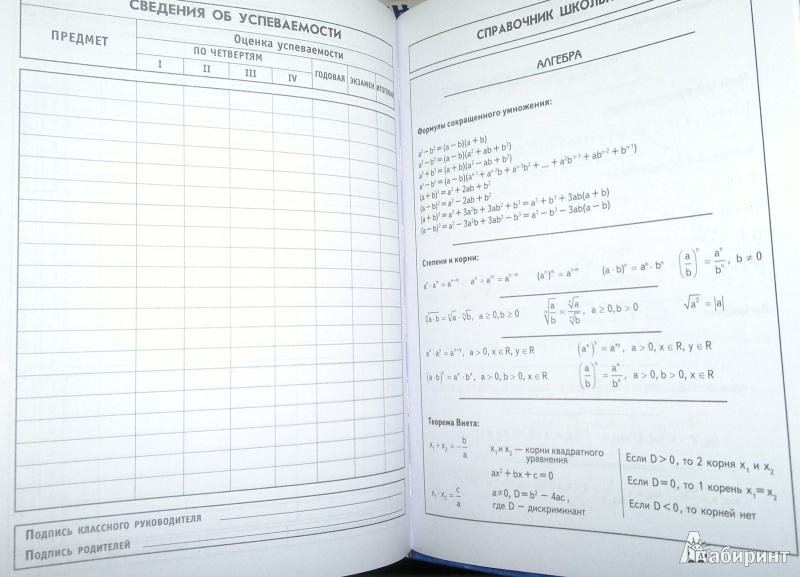 СВЕДЕНИЯ ОБ УСПЕВАЕМОСТИ
ПРЕДМЕТ
Оценка успеваемости
ПО ЧЕТВЕРТЯМ
I II III IV ГОДОВАЯ ЭКЗАМЕН
Подпись классного руководителя
Подпись родителей
СПРАВОЧНИК
АЛГЕБРА
Формулы сокращенного умножения:
a² − b² = (a − b)(a + b)
a³ − b³ = (a − b)(a² + ab + b²)
a³ + b³ = (a + b)(a² − ab + b²)
aⁿ − bⁿ = (a − b)(aⁿ⁻¹ + aⁿ⁻²b + aⁿ⁻³b² + ... + a²bⁿ⁻³ + abⁿ⁻² + bⁿ⁻¹)
(a + b)² = a² + 2ab + b²
(a − b)² = a² − 2ab + b²
(a + b)³ = a³ + 3a²b + 3ab² + b³ = a³ + b³ + 3ab(a + b)
(a − b)³ = a³ − 3a²b + 3ab² − b³ = a³ − b³ − 3ab(a − b)
Степени и корни:
aⁿ · aᵐ = aⁿ⁺ᵐ aⁿ ÷ aᵐ = aⁿ⁻ᵐ (aⁿ)ᵐ = aⁿᵐ (a · b)ⁿ = aⁿ · bⁿ (a/b)ⁿ = aⁿ/bⁿ, b ≠ 0
ⁿ√a·b = ⁿ√a · ⁿ√b, a ≥ 0, b ≥ 0 ⁿ√a/b = ⁿ√a/ⁿ√b, a ≥ 0, b > 0 √a² = |a|
aˣ · aʸ = aˣ⁺ʸ, a > 0, x ∈ R, y ∈ R (aˣ)ʸ = aˣʸ, a > 0, x ∈ R, y ∈ R
(a · b)ˣ = aˣ · bˣ, a > 0, b > 0, x ∈ R (a/b)ˣ = aˣ/bˣ, a > 0, b > 0, x ∈ R
Теорема Виета:
x₁ + x₂ = −b/a
x₁ · x₂ = c/a
x₁ и x₂ — корни квадратного
уравнения
ax² + bx + c = 0
a ≠ 0, D = b² − 4ac,
где D — дискриминант
Если D > 0, то 2 корня x₁ и x₂
Если D = 0, то 1 корень x₁ = x₂
Если D < 0, то корней нет
Лабиринт